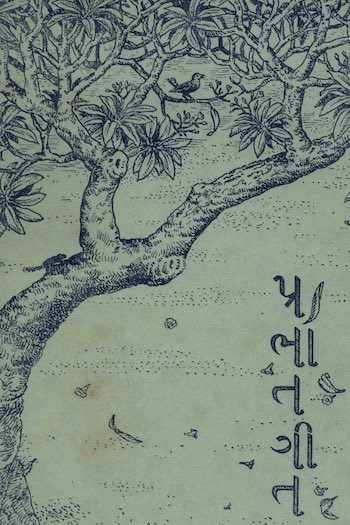 પ્રભાતગીત